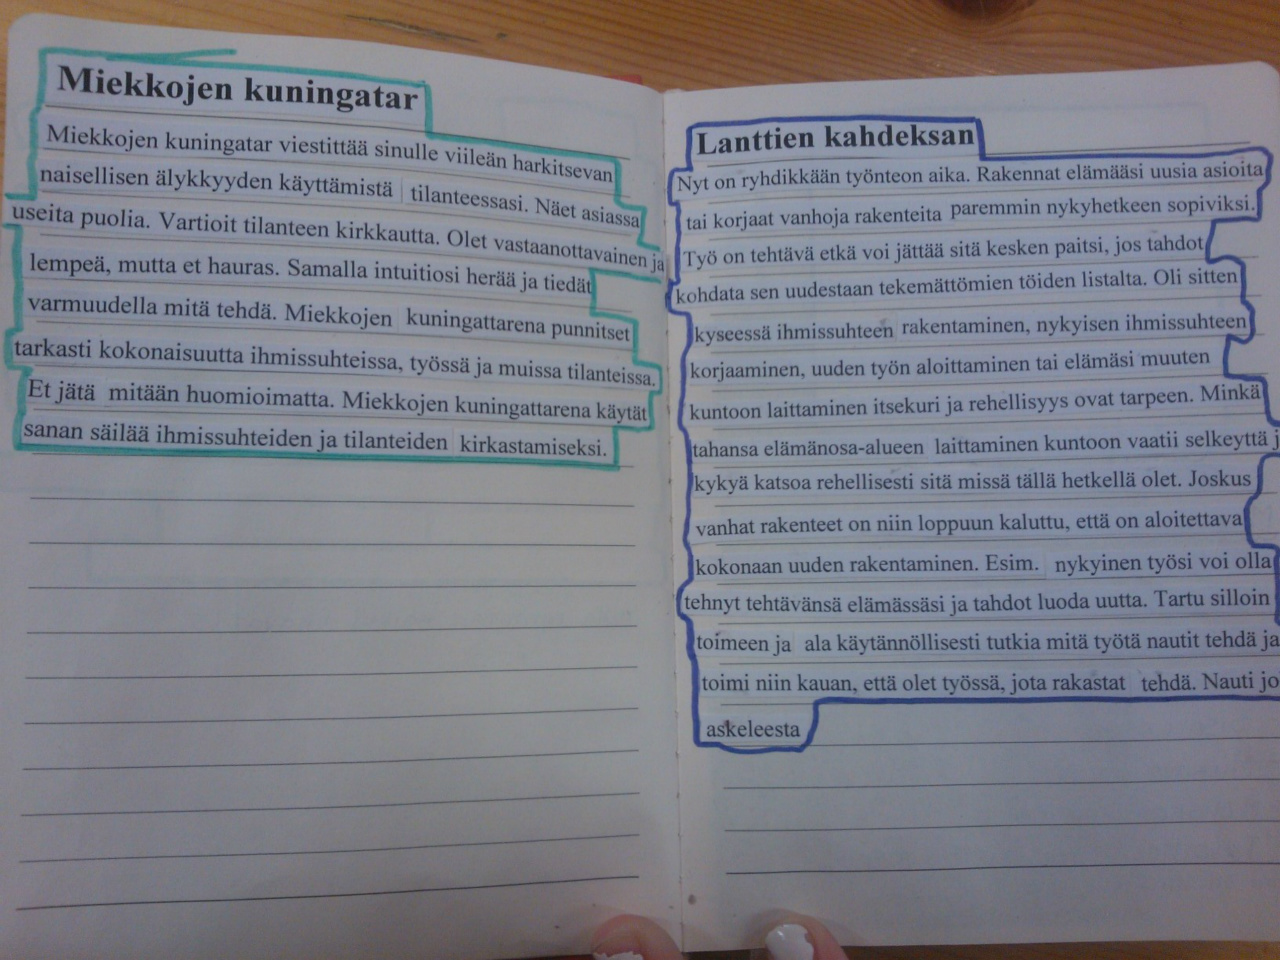 Miekkojen kuningatar
Miekkojen kuningatar viestittää sinulle viileän harkitsevan
naisellisen älykkyyden käyttämistä tilanteessasi. Näet asiassa
useita puolia. Vartioit tilanteen kirkkautta. Olet vastaanottavainen ja
lempeä, mutta et hauras. Samalla intuitiosi herää ja tiedät
varmuudella mitä tehdä. Miekkojen kuningattarena punnitset
tarkasti kokonaisuutta ihmissuhteissa, työssä ja muissa tilanteissa.
Et jätä mitään huomioimatta. Miekkojen kuningattarena käytät
sanan säilää ihmissuhteiden ja tilanteiden kirkastamiseksi.
Lanttien kahdeksan
Nyt on ryhdikkään työnteon aika. Rakennat elämääsi uusia asioita
tai korjaat vanhoja rakenteita paremmin nykyhetkeen sopiviksi.
Työ on tehtävä etkä voi jättää sitä kesken paitsi, jos tahdot
kohdata sen uudestaan tekemättömien töiden listalta. Oli sitten
kyseessä ihmissuhteen rakentaminen, nykyisen ihmissuhteen
korjaaminen, uuden työn aloittaminen tai elämäsi muuten
kuntoon laittaminen itsekuri ja rehellisyys ovat tarpeen. Minkä
tahansa elämänosa-alueen laittaminen kuntoon vaatii selkeyttä j
kykyä katsoa rehellisesti sitä missä tällä hetkellä olet. Joskus
vanhat rakenteet on niin loppuun kaluttu, että on aloitettava
kokonaan uuden rakentaminen. Esim. nykyinen työsi voi olla
tehnyt tehtävänsä elämässäsi ja tahdot luoda uutta. Tartu silloin
toimeen ja ala käytännöllisesti tutkia mitä työtä nautit tehdä ja
toimi niin kauan, että olet työssä, jota rakastat tehdä. Nauti jo
askeleesta